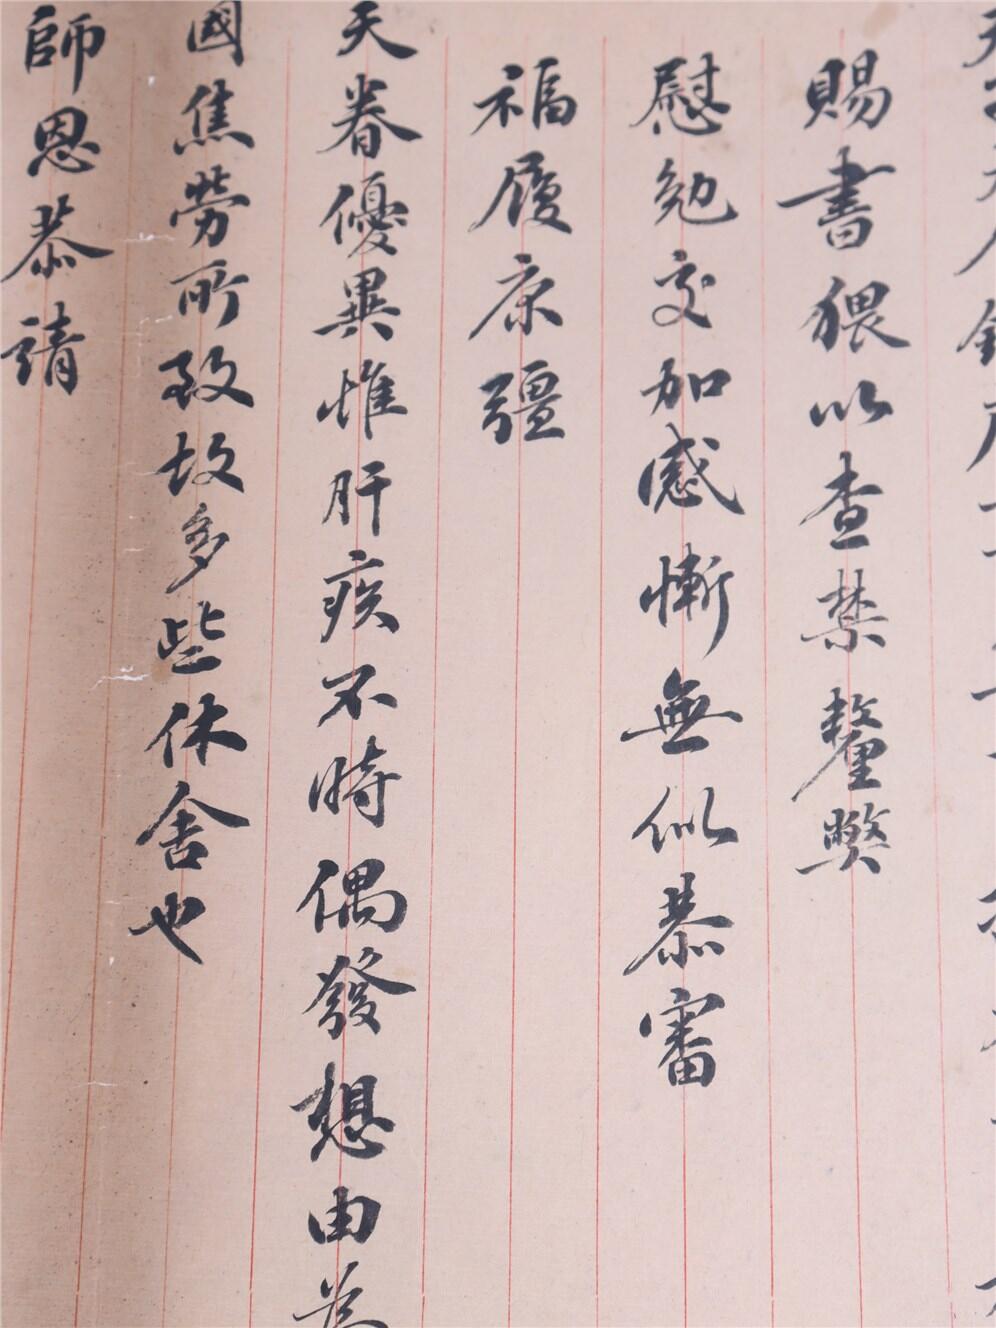 賜書猥以查禁釐弊
慰勉交加感慚無似恭審
福履康彊
天眷優異惟肝疾不時偶發想由為
國焦勞所致故多些休舍也
師恩恭請